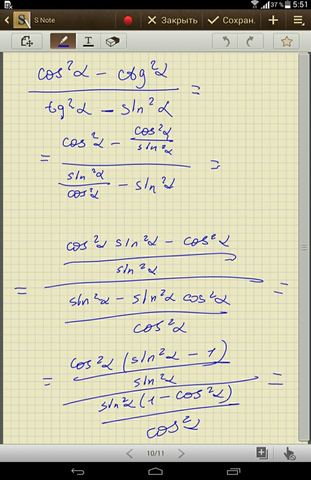 37% 5:51
S Note Закрыть Сохран.
T
cos²α - ctg²α / tg²α - sin²α =
= cos²α - cos²α/sin²α / sin²α/cos²α - sin²α =
= cos²α sin²α - cos²α / sin²α / sin²α - sin²α cos²α / cos²α =
= cos²α (sin²α - 1) / sin²α / sin²α (1 - cos²α) / cos²α =
10/11